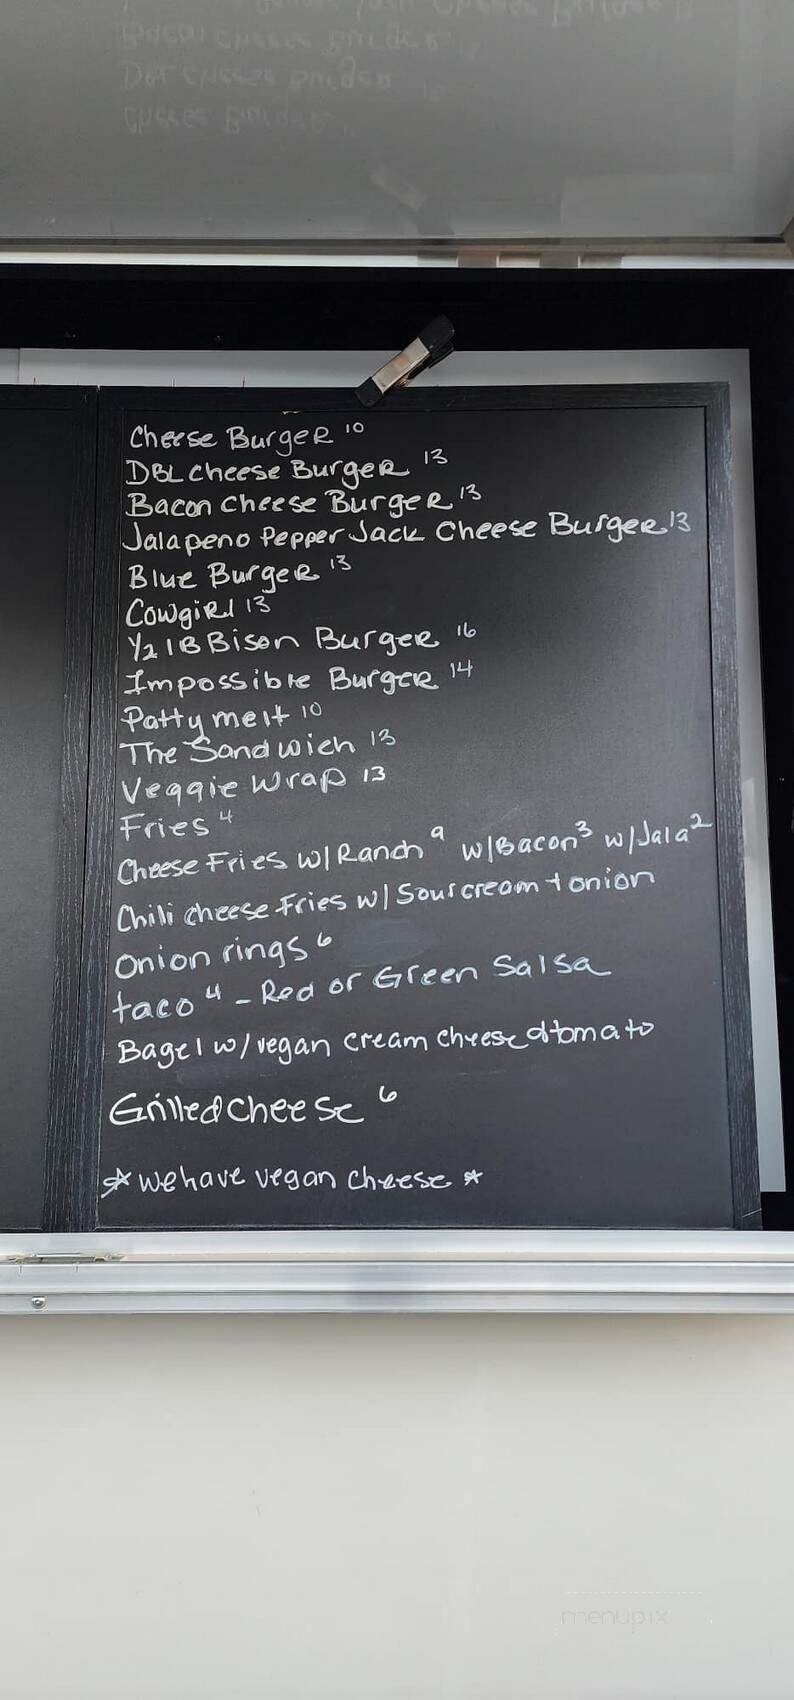 Cheese Burger 10
DBL Cheese Burger 13
Bacon Cheese Burger 13
Jalapeno Pepper Jack Cheese Burger 13
Blue Burger 13
Cowgirl 13
1/2 lB Bison Burger 16
Impossible Burger 14
Patty melt 10
The Sandwich 13
Veggie Wrap 13
Fries 4
Cheese Fries w/Ranch 9 w/Bacon 3 w/Jala 2
Chili cheese Fries w/Sour cream + onion
Onion rings 6
taco 4 - Red or Green Salsa
Bagel w/vegan cream cheese & tomato
Grilled cheese 6
* we have vegan cheese *
menupix